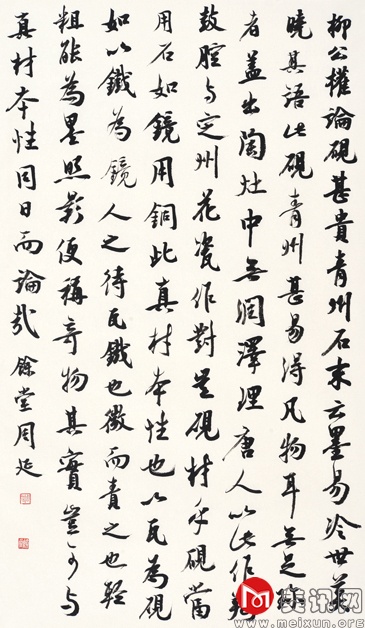 柳公權論硯甚貴青州石末云墨易冷世莫
曉其語此硯青州甚易得凡物耳無足珍
者蓋出陶灶中無潤澤理唐人以此作羯
鼓腔与定州花瓷作對豈硯材乎硯當
用石如鏡用銅此真材本性也以瓦為硯
如以鐵為鏡人之待瓦鐵也微而責之也輕
粗能為墨照影便稱奇物其實豈可与
真材本性同日而論哉 餘堂周延
美讯网
www.meixun.org